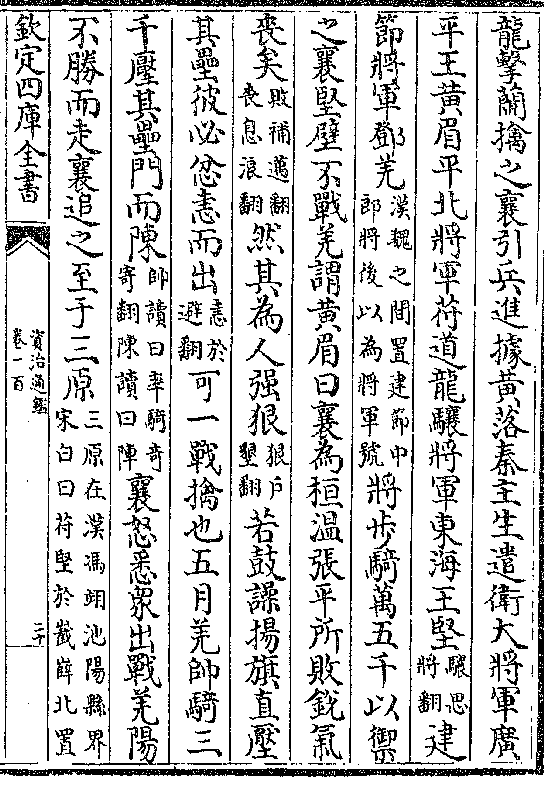 龍擊蘭擒之襄引兵進據黃落秦主生遣衛大將軍廣
平王黃眉平北將軍苻道龍驤將軍東海王堅驤思將翻建
節將軍鄧羌漢魏之間置建節中郎將後以為將軍號將步騎萬五千以禦
之襄堅壁不戰羌謂黃眉曰襄為桓溫張平所敗銳氣
喪矣敗補邁翻喪息浪翻然其為人强狠狠户墾翻若鼓譟揚旗直壓
其壘彼必忿恚而出恚於避翻可一戰擒也五月羌帥騎三
千壓其壘門而陳帥讀曰率騎奇寄翻陳讀曰陣襄怒悉衆出戰羌陽
不勝而走襄追之至于三原三原在漢馮翊池陽縣界宋白曰苻堅於巀嶭北置
欽定四庫全書
資治通鑑
卷一百
二十